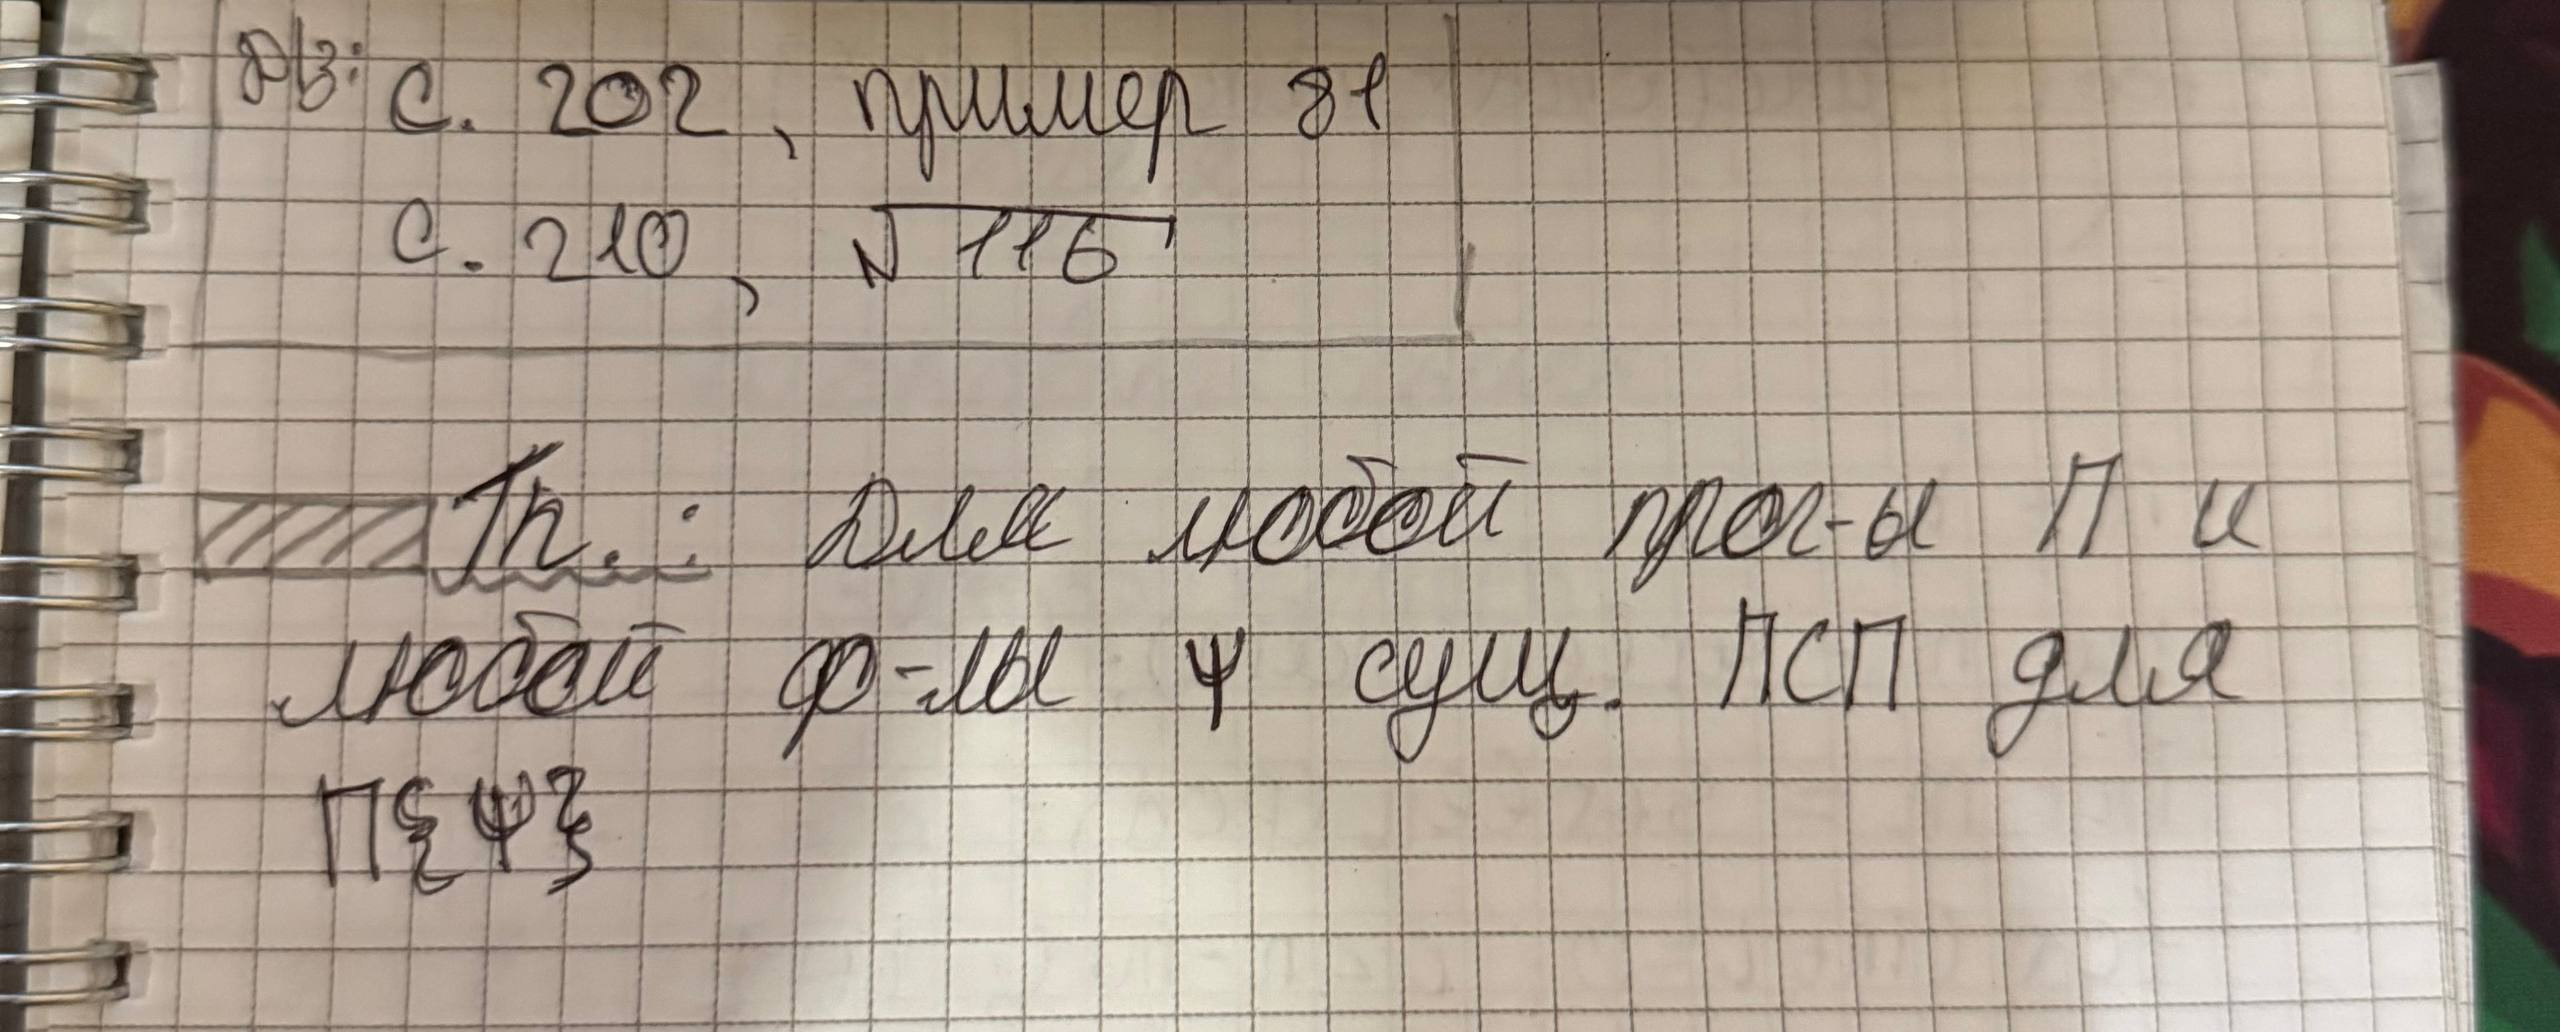 Д/з: с. 202, пример 81
с. 210, №116
Th.: Для любой прог-ы П и
любой ф-лы Ψ сущ. ПСП для
П{Ψ}